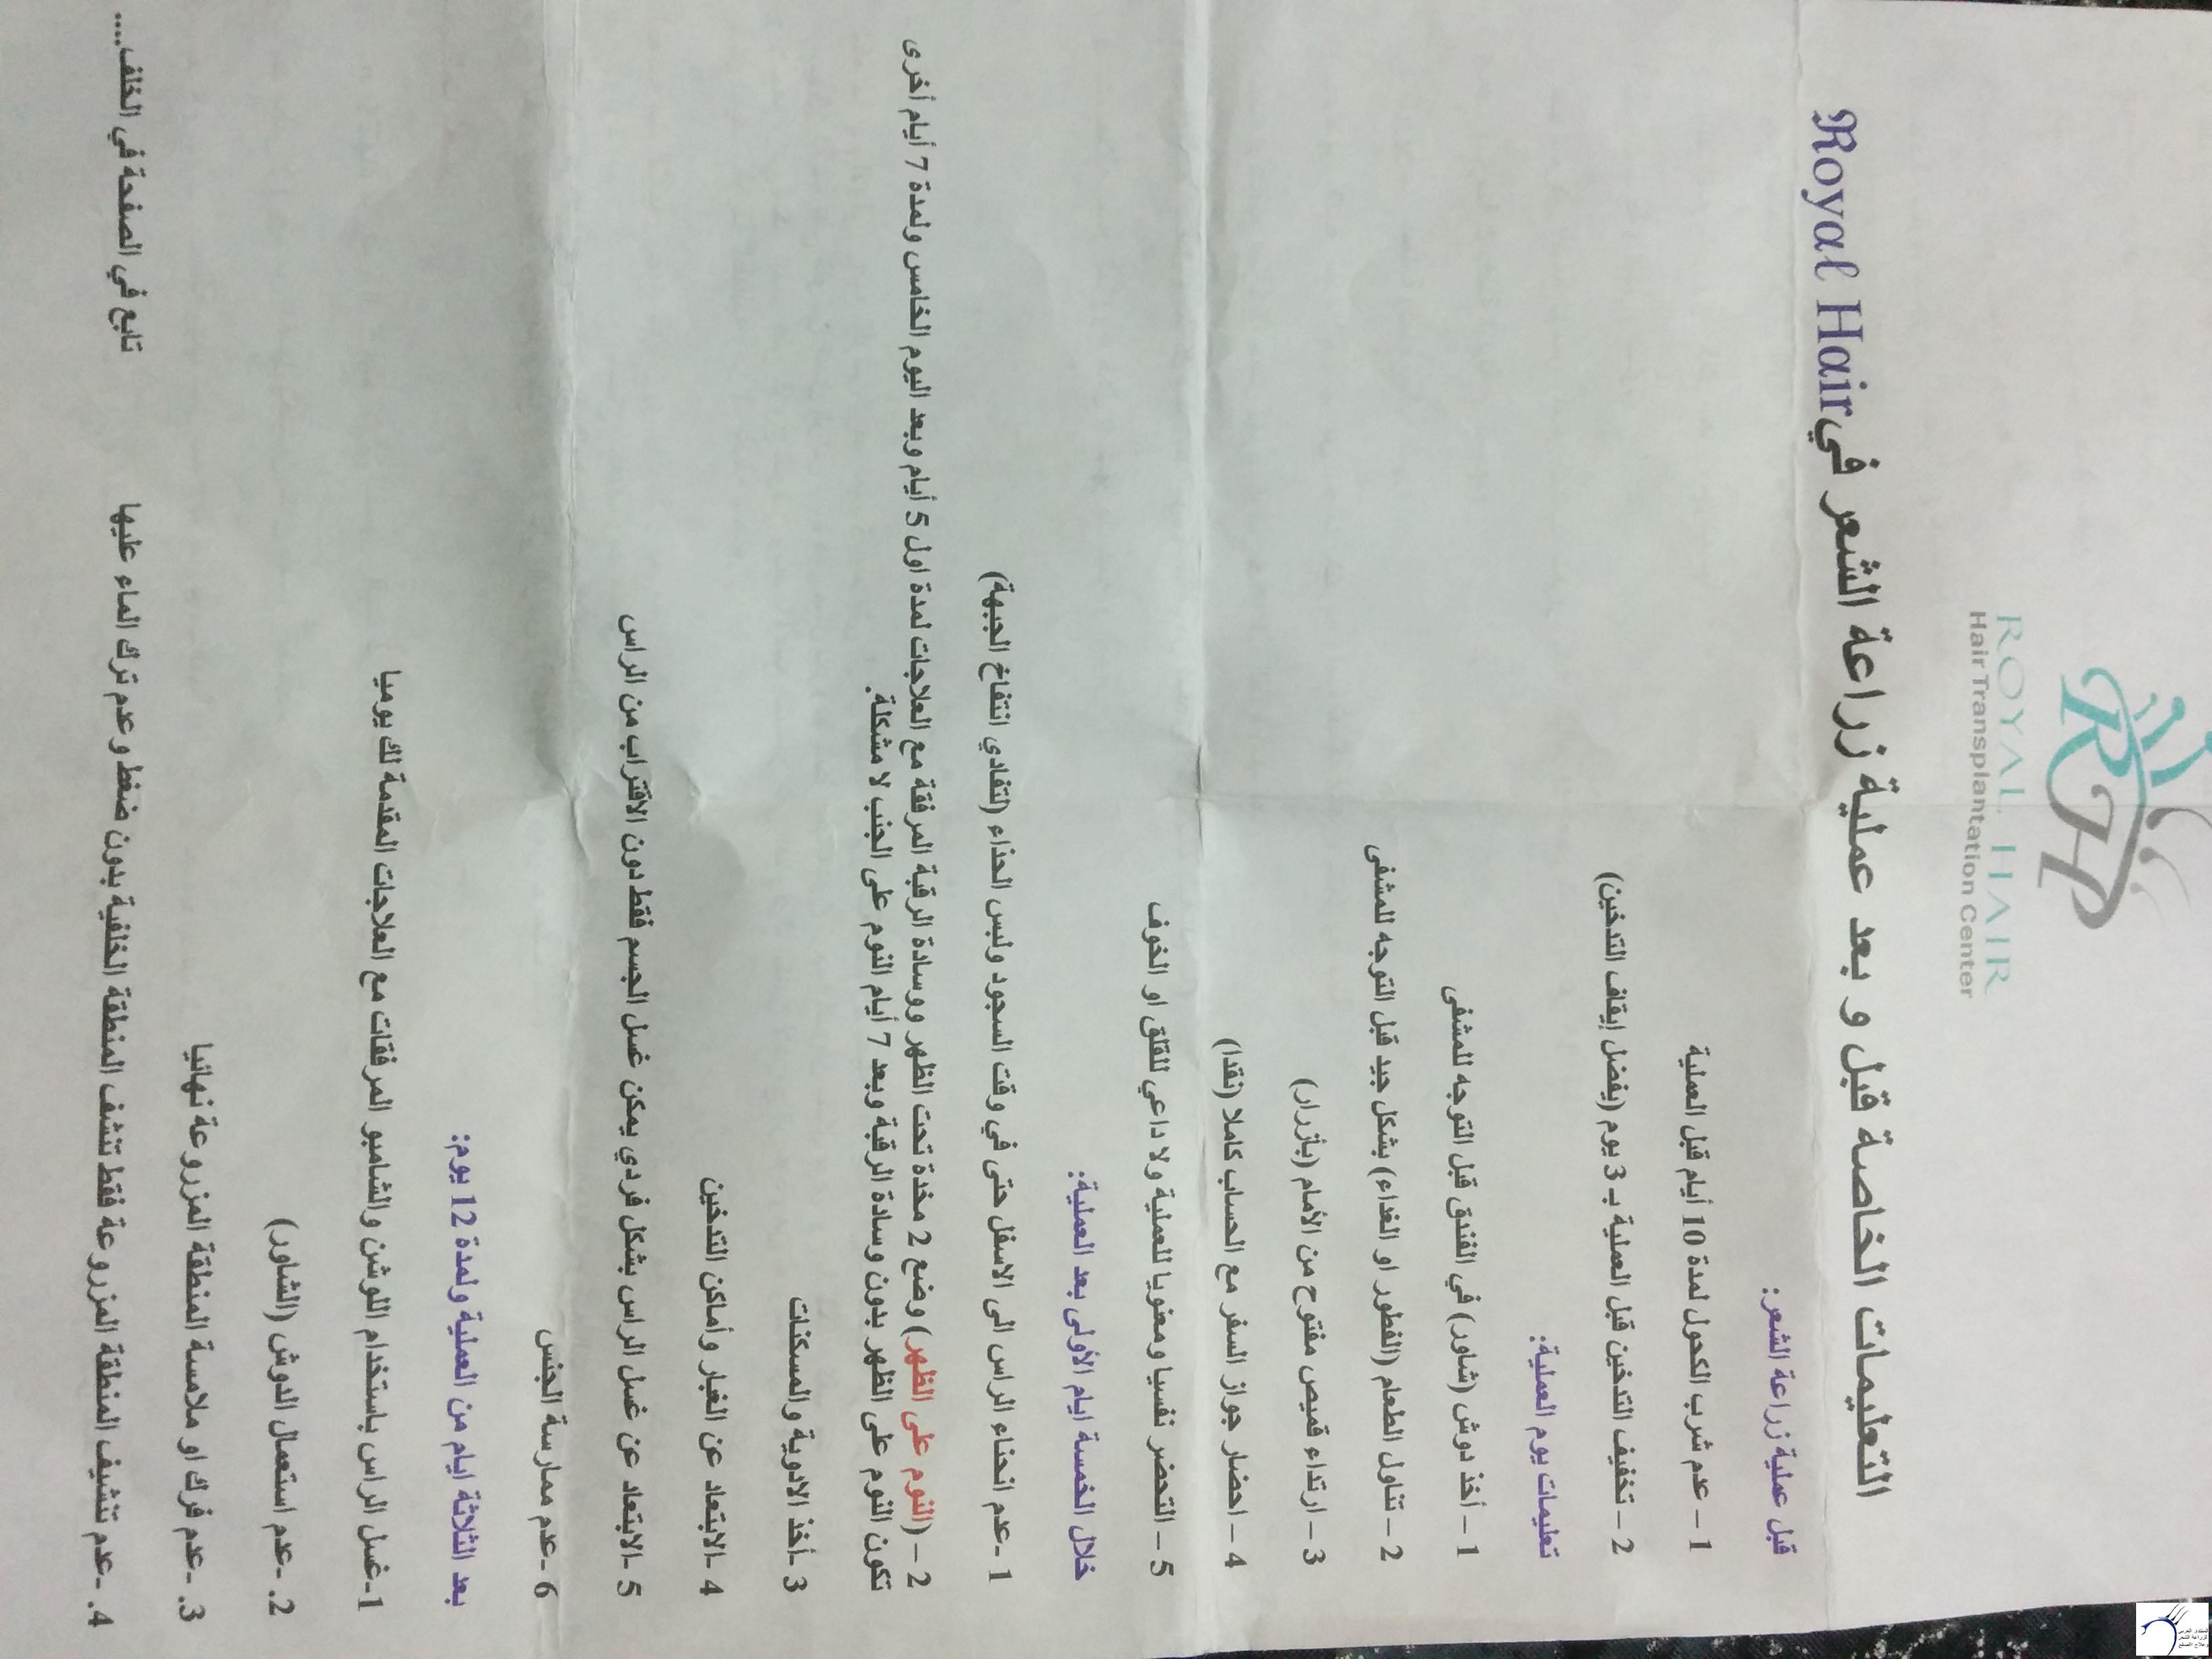 ROYAL HAIR
Hair Transplantation Center
التعليمات الخاصة قبل و بعد عملية زراعة الشعر في Royal Hair
قبل عملية زراعة الشعر:
1 – عدم شرب الكحول لمدة 10 أيام قبل العملية
2 – تخفيف التدخين قبل العملية بـ 3 يوم (يفضل إيقاف التدخين)
تعليمات يوم العملية:
1 – أخذ دوش (شاور) في الفندق قبل التوجه للمشفى
2 – تناول الطعام (الفطور او الغداء) بشكل جيد قبل التوجه للمشفى
3 – ارتداء قميص مفتوح من الأمام (بأزرار)
4 – احضار جواز السفر مع الحساب كاملا (نقدا)
5 – التحضر نفسيا ومعنويا للعملية ولا داعي للقلق او الخوف
خلال الخمسة ايام الأولى بعد العملية:
1 -عدم انحناء الراس الى الاسفل حتى في وقت السجود ولبس الحذاء (لتفادي انتفاخ الجبهة)
2 – (النوم على الظهر) وضع 2 مخدة تحت الظهر ووسادة الرقبة المرفقة مع العلاجات لمدة اول 5 أيام وبعد اليوم الخامس ولمدة 7 أيام أخرى
تكون النوم على الظهر بدون وسادة الرقبة وبعد 7 أيام النوم على الجنب لا مشكلة.
3 -أخذ الادوية والمسكنات
4 -الابتعاد عن الغبار وأماكن التدخين
5 -الابتعاد عن غسل الراس بشكل فردي يمكن غسل الجسم فقط دون الاقتراب من الراس
6 -عدم ممارسة الجنس
بعد الثلاثة ايام من العملية ولمدة 12 يوم:
1-غسل الراس باستخدام اللوشن والشامبو المرفقات مع العلاجات المقدمة لك يوميا
2. -عدم استعمال الدوش (الشاور)
3. -عدم فرك او ملامسة المنطقة المزروعة نهائيا
4. -عدم تنشيف المنطقة المزروعة فقط تنشف المنطقة الخلفية بدون ضغط وعدم ترك الماء عليها
تابع في الصفحة في الخلف....